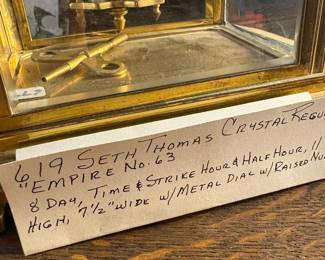 619 SETH THOMAS CRYSTAL REGU
"EMPIRE NO. 63
8 DAY, TIME & STRIKE HOUR & HALF HOUR, 11
HIGH, 7½" WIDE W/ METAL DIAL W/ RAISED NU